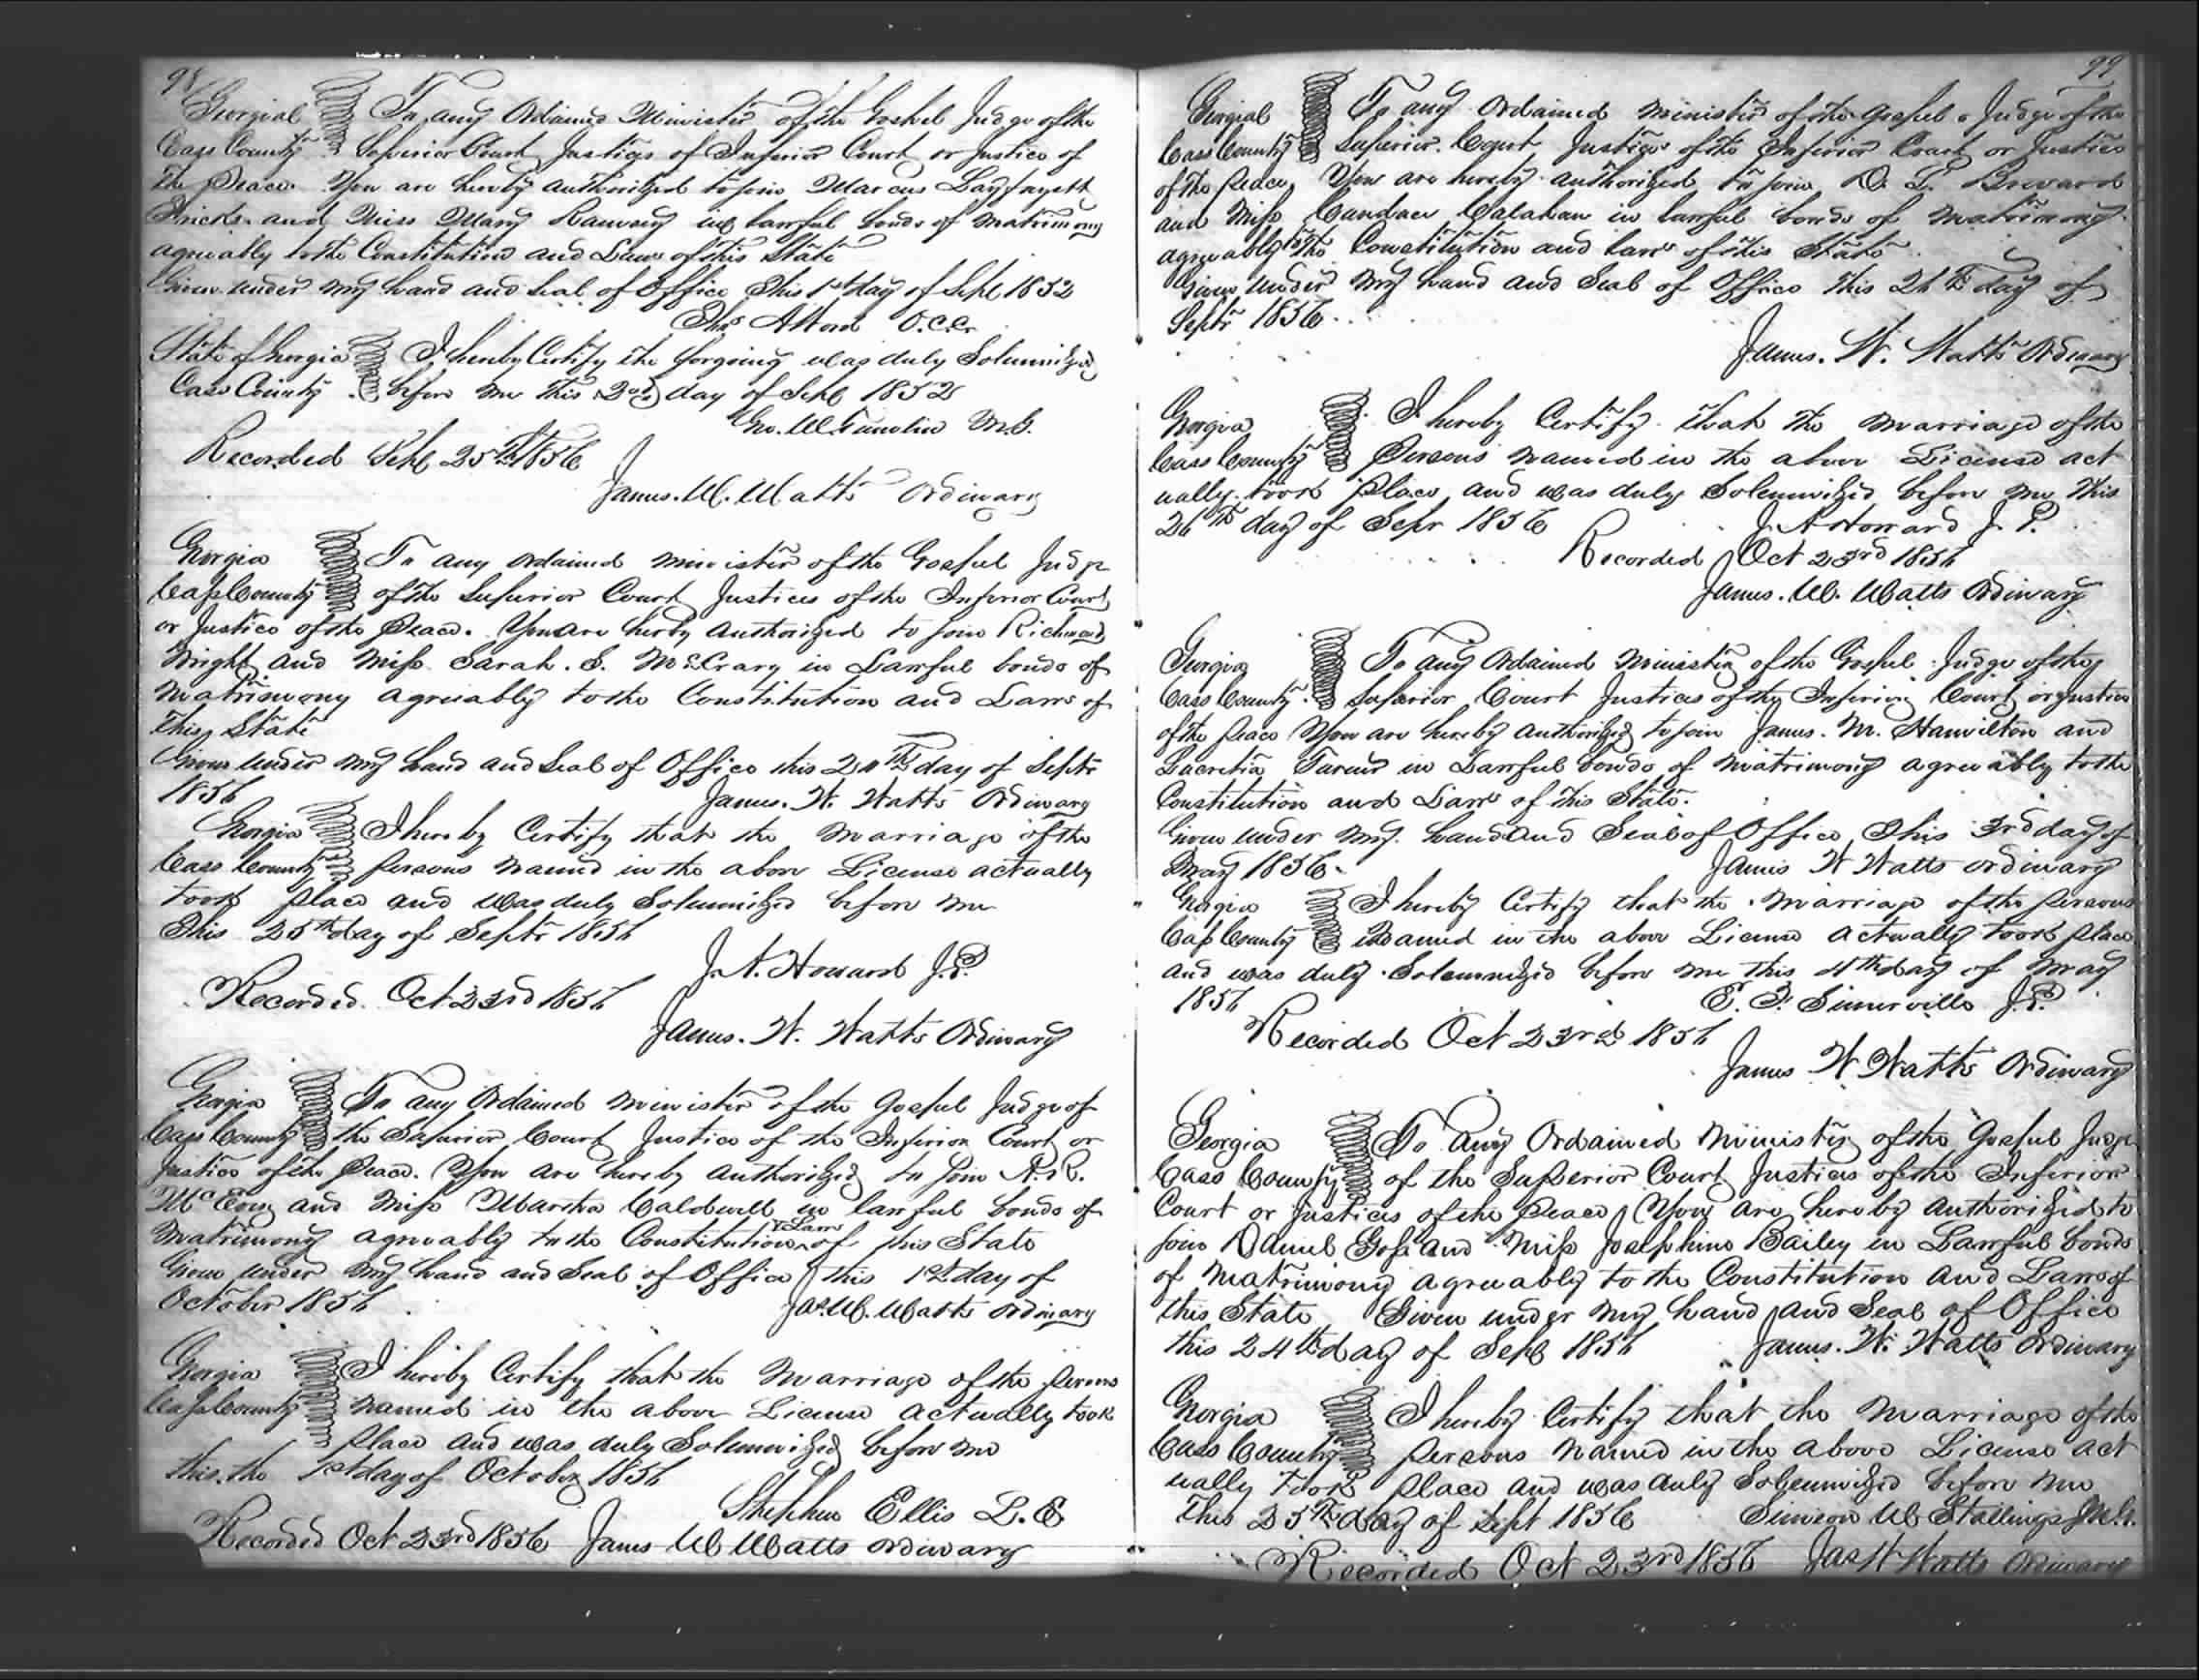 98
Georgia To any Ordained Minister of the Goskel Judge of the
Cass County Superior Court Justices of Inferior Court or Justice of
the Peace You are hereby authorized to join Marcus Layfayett
and Miss Mary Ramsey in lawful bonds of matrimony
agreeably to the Constitution and Laws of this State
Given under my hand and seal of Office this 1st day of Sept 1852
Thos Alford O.C.C.
State of Georgia I hereby Certify the forgoing was duly Solemnized
Cass County before me this 2nd day of Sept 1852
Geo. W. M.G.
Recorded Sept 25th 1856
James. W. Watts Ordinary
Georgia To any ordained minister of the Gospel Judge
Cass County of the Superior Court Justices of the Inferior Court
or Justice of the Peace. You are herby authorized to join Richmond
Wright and Miss Sarah. S. McCrary in Lawful bonds of
Matrimony agreeably to the Constitution and Laws of
this State
Given under my hand and Seal of Office this day of Septr
1856 James. W. Watts Ordinary
Georgia I hereby Certify that the marriage of the
Cass County persons named in the above License actually
took place and was duly Solemnized before me
this 25th day of Septr 1856
J. A. Howard J.P.
Recorded. Oct 23rd 1856
James. W. Watts Ordinary
Georgia To any Ordained minister of the Gospel Judge of
Cass County the Superior Court Justice of the Inferior Court or
Justice of the Peace. You are hereby authorized to join A. R.
and Miss Martha Caldwell in lawful bonds of
matrimony agreeably to the Constitution & Laws of this State
Given under my hand and Seal of Office this 1st day of
October 1856 Jas. W. Watts Ordinary
Georgia I hereby Certify that the Marriage of the persons
Cass County named in the above License actually took
place and was duly Solemnized before me
this the 1st day of October 1856
Stephen Ellis L. E
Recorded Oct 23rd 1856 James W Watts ordinary
99
Georgia To any Ordained Minister of the Gospel Judge of the
Cass County Superior Court Justices of the Inferior Court or Justice
of the peace, You are hereby authorized to join D. L. Brevard
and Miss Candace Calahan in lawful bonds of matrimony
agreeably to the Constitution and laws of this State
Given under my hand and Seal of Office this 26th day of
Septr 1856
James. W. Watts Ordinary
Georgia I hereby Certify that the marriage of the
Cass County Persons named in the above License act
ually took place and was duly Solemnized before me this
26th day of Sepr 1856 J. A Howard J. P.
Recorded Oct 23rd 1856
James. W. Watts Ordinary
Georgia To any Ordained Minister of the Gospel Judge of the
Cass County Superior Court Justices of the Inferior Court or Justice
of the peace You are hereby authorized to join James. M. Hamilton and
Lucretia in Lawful bonds of matrimony agreeably to the
Constitution and Laws of this State.
Given under my hand and Seal of Office this 3rd day of
May 1856. James W Watts ordinary
Georgia I hereby Certify that the marriage of the persons
Cass County named in the above License actually took place
and was duly Solemnized before me this 4th day of May
1856 Simerville J.P.
Recorded Oct 23rd 1856
James W Watts Ordinary
Georgia To Any Ordained Minister of the Gospel Judge
Cass County of the Superior Court Justices of the Inferior
Court or Justices of the Peace You are hereby authorized to
join Daniel Goss and Miss Josephine Bailey in Lawful bonds
of Matrimony agreeably to the Constitution and Laws of
this State Given under my hand and Seal of Office
this 24th day of Sept 1856 James. W. Watts Ordinary
Georgia I hereby Certify that the Marriage of the
Cass County persons named in the above License act
ually took place and was duly Solemnized before me
this 25th day of Sept 1856 Simeon W Stallings M.G.
Recorded Oct 23rd 1856 Jas W Watts Ordinary